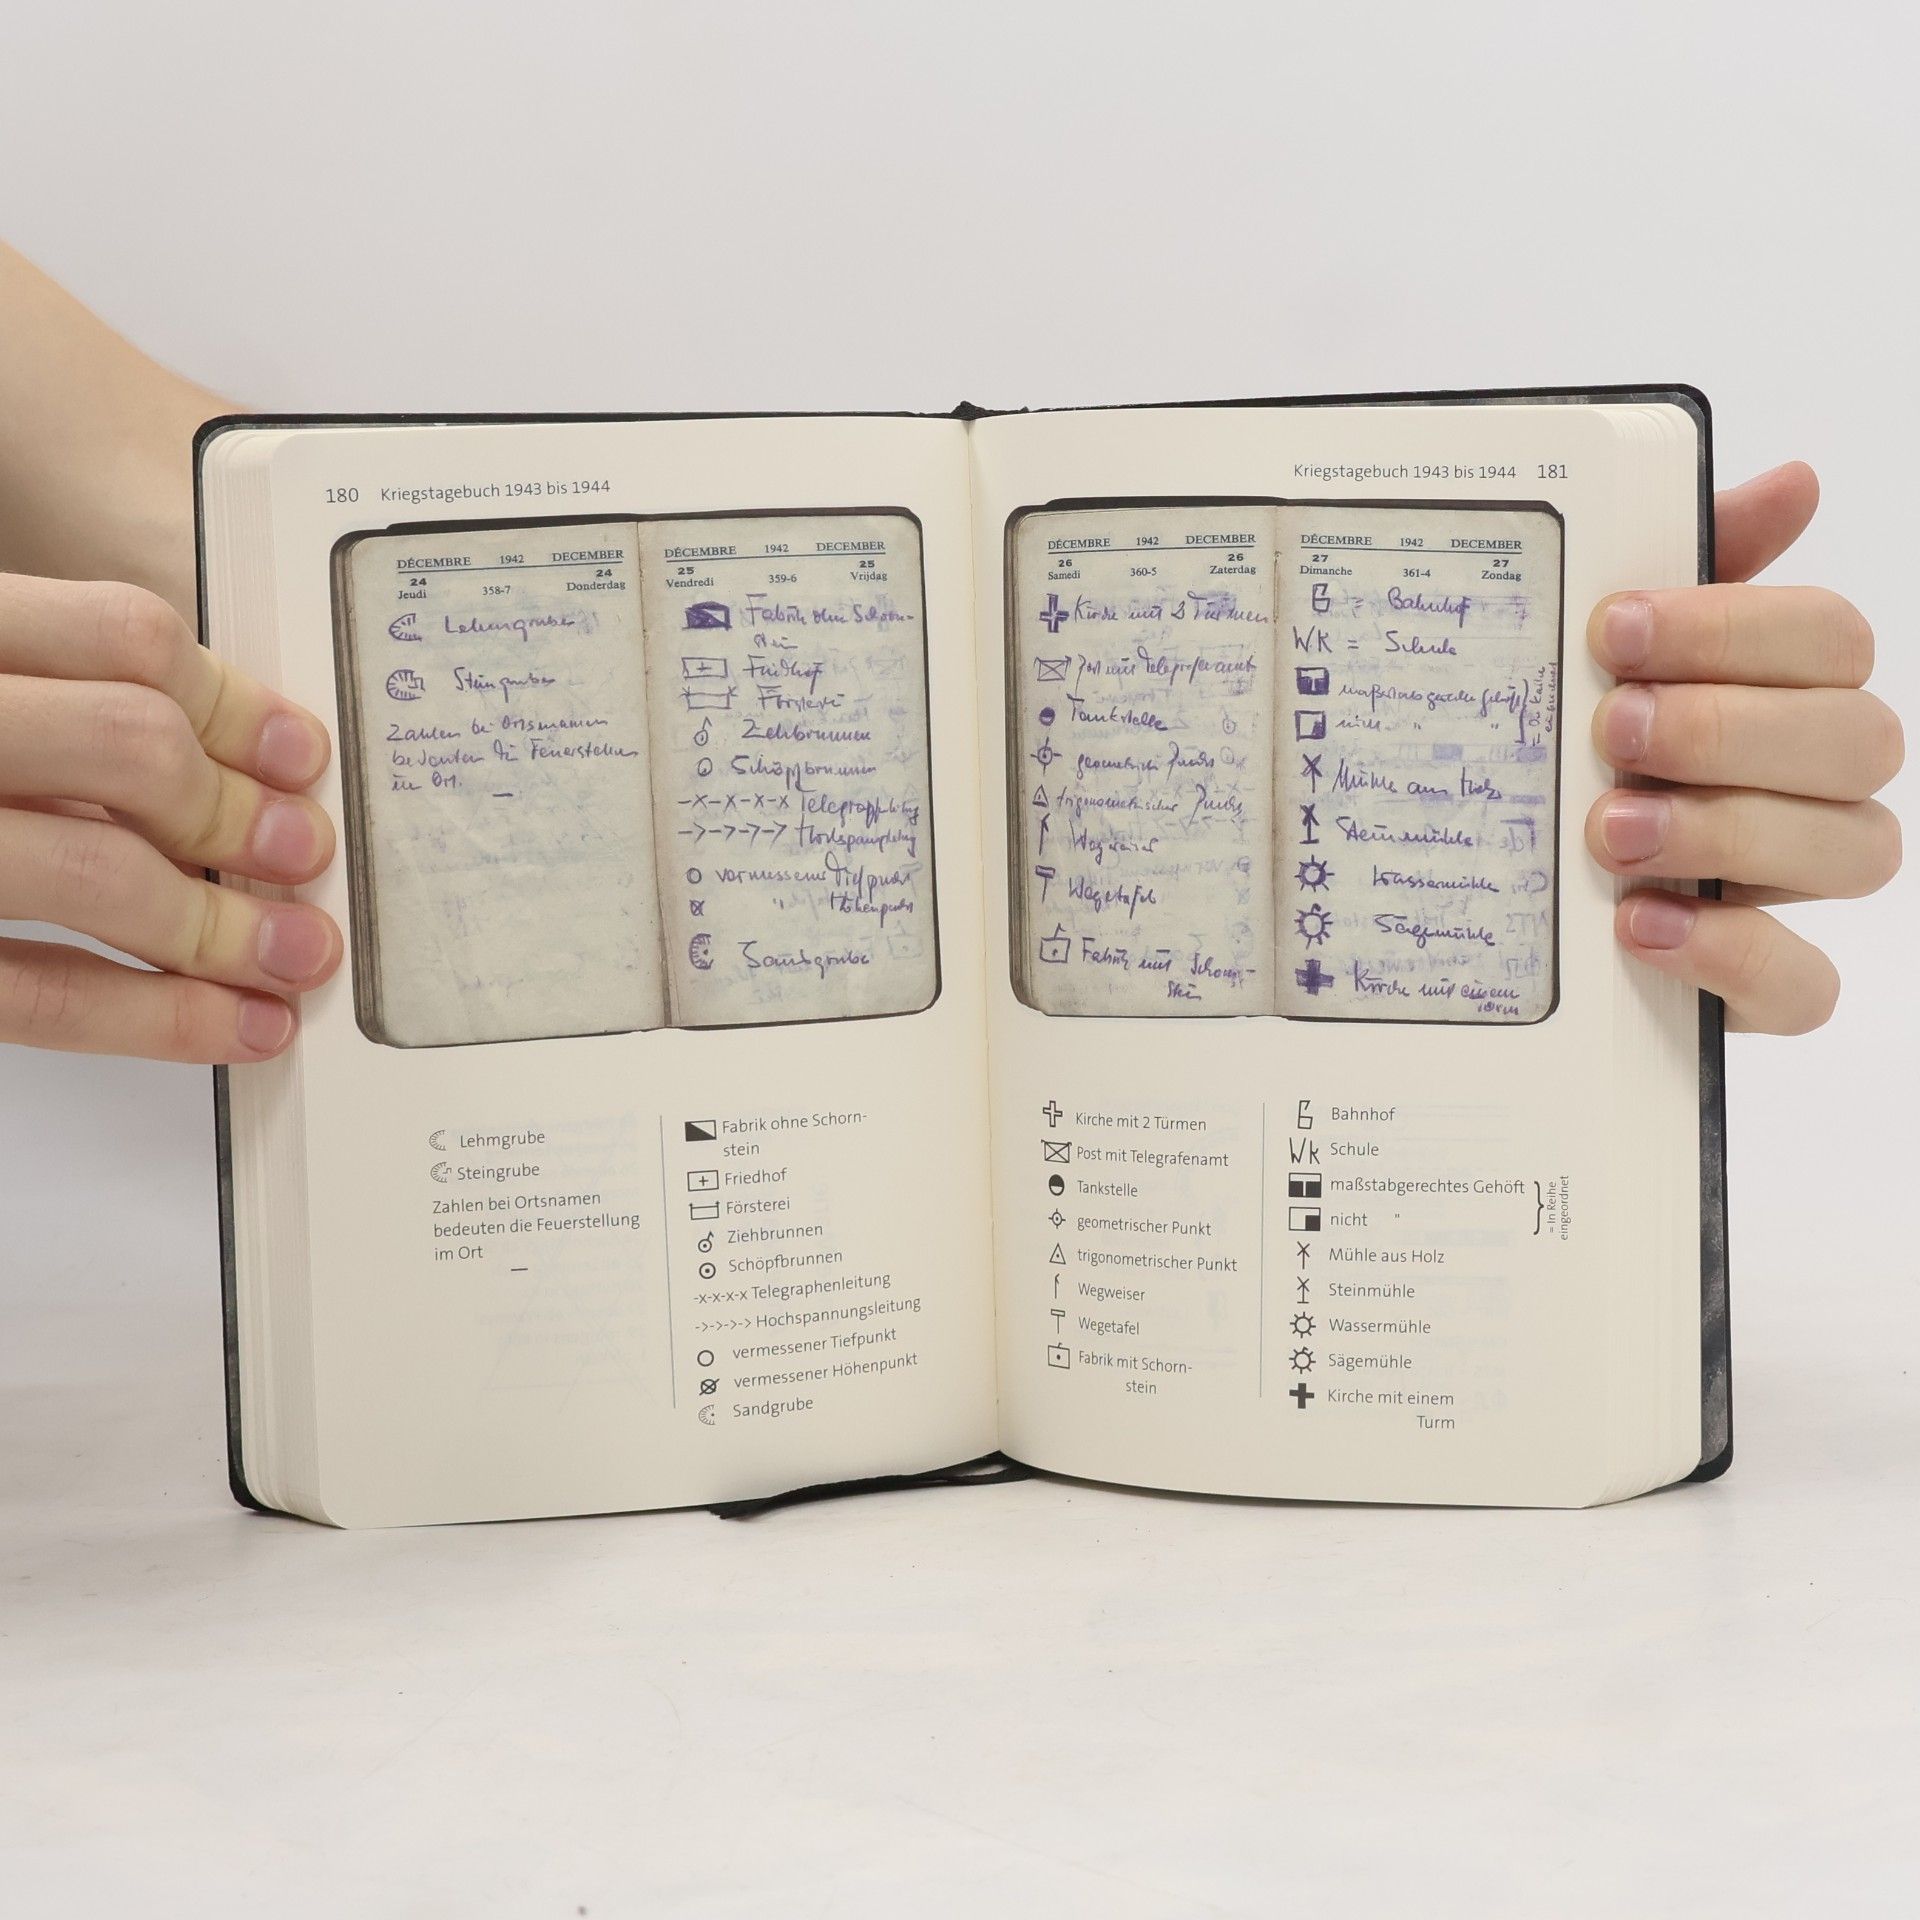 180 Kriegstagebuch 1943 bis 1944
DÉCEMBRE 1942 DECEMBER
24 24
Jeudi 358-7 Donderdag
Lehmgrube
Steingrube
Zahlen bei Ortsnamen
bedeuten die Feuerstellen
im Ort.
DÉCEMBRE 1942 DECEMBER
25 25
Vendredi 359-6 Vrijdag
Fabrik ohne Schorn-
stein
Friedhof
Försterei
Ziehbrunnen
Schöpfbrunnen
-x-x-x-x Telegraphenltung
->->->-> Hochspanngsltung
vermessener Tiefpunkt
" Höhenpunkt
Sandgrube
Lehmgrube
Steingrube
Zahlen bei Ortsnamen
bedeuten die Feuerstellung
im Ort
—
Fabrik ohne Schorn-
stein
Friedhof
Försterei
Ziehbrunnen
Schöpfbrunnen
-x-x-x-x Telegraphenleitung
->->->-> Hochspannungsleitung
vermessener Tiefpunkt
vermessener Höhenpunkt
Sandgrube
Kriegstagebuch 1943 bis 1944 181
DÉCEMBRE 1942 DECEMBER
26 26
Samedi 360-5 Zaterdag
Kirche mit 2 Türmen
Post mit Telegrafenamt
Tankstelle
geometrischer Punkt
trigonometrischer Punkt
Wegweiser
Wegetafel
Fabrik mit Schorn-
stein
DÉCEMBRE 1942 DECEMBER
27 27
Dimanche 361-4 Zondag
= Bahnhof
WK = Schule
maßstabsgerechtes Gehöft
nicht " "
Mühle aus Holz
Steinmühle
Wassermühle
Sägemühle
Kirche mit einem
Turm
Kirche mit 2 Türmen
Post mit Telegrafenamt
Tankstelle
geometrischer Punkt
trigonometrischer Punkt
Wegweiser
Wegetafel
Fabrik mit Schorn-
stein
Bahnhof
WK Schule
maßstabgerechtes Gehöft
nicht "
= In Reihe
eingeordnet
Mühle aus Holz
Steinmühle
Wassermühle
Sägemühle
Kirche mit einem
Turm